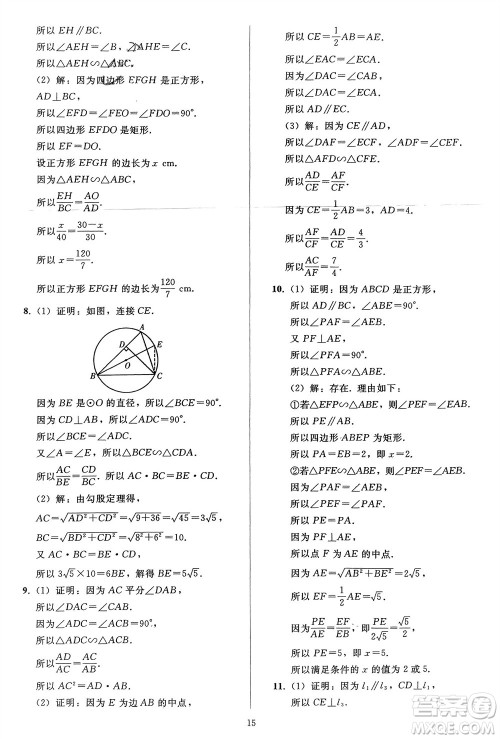 所以 EH∥BC.
所以∠AEH=∠B,∠AHE=∠C.
所以△AEH∽△ABC.
(2) 解:因为四边形 EFGH 是正方形,
AD⊥BC,
所以∠EFD=∠FEO=∠FDO=90°.
所以四边形 EFDO 是矩形.
所以 EF=DO.
设正方形 EFGH 的边长为 x cm.
因为△AEH∽△ABC,
所以 EH/BC=AO/AD.
所以 x/40=(30-x)/30.
所以 x=120/7.
所以正方形 EFGH 的边长为 120/7 cm.
8. (1) 证明:如图,连接 CE.
A
D
E
O
B
C
因为 BE 是⊙O 的直径,所以∠BCE=90°.
因为 CD⊥AB,所以∠ADC=90°.
所以∠BCE=∠ADC.
又∠A=∠E,所以△BCE∽△CDA.
所以 AC/BE=CD/BC. 所以 AC·BC=BE·CD.
(2) 解:由勾股定理得,
AC=√(AD²+CD²)=√(9+36)=√45=3√5,
BC=√(BD²+CD²)=√(64+36)=10.
又 AC·BC=BE·CD,
所以 3√5×10=6BE. 所以 BE=5√5.
9. (1) 证明:因为 AC 平分∠DAB,
所以∠DAC=∠CAB.
又∠ADC=∠ACB=90°,
所以△ADC∽△ACB.
所以 AD/AC=AC/AB.
所以 AC²=AD·AB.
(2) 证明:因为 E 为 AB 的中点,
所以 CE=1/2 AB=AE.
所以∠EAC=∠ECA.
因为∠DAC=∠CAB,
所以∠DAC=∠ECA.
所以 AD∥EC.
(3) 证明:因为 CE∥AD,
所以∠DAF=∠ECF,∠ADF=∠CEF.
所以△AFD∽△CFE.
所以 AD/CE=AF/CF.
因为 CE=1/2 AB=3,AD=4.
所以 AF/CF=AD/CE=4/3.
所以 AC/AF=7/4.
10. (1) 证明:因为 ABCD 是正方形,
所以 AD∥BC,∠ABE=90°.
所以∠PAF=∠AEB.
又 PF⊥AE,
所以∠PFA=∠ABE=90°.
所以△PFA∽△ABE.
(2) 解:存在. 理由如下:
①若△EFP∽△ABE,
则∠PEF=∠EAB.
所以 PE∥AB.
所以四边形 ABEP 为矩形.
所以 PA=EB=2,即 x=2.
②若△PFE∽△ABE,
则∠PEF=∠AEB.
因为∠PAF=∠AEB,
所以∠PEF=∠PAF.
所以 PE=PA.
因为 PF⊥AE,
所以点 F 为 AE 的中点.
因为 AE=√(AB²+BE²)=2√5,
所以 EF=1/2 AE=√5.
因为 PE/AE=EF/EB,即 PE/2√5=√5/2,
所以 PE=5,即 x=5.
所以满足条件的 x 的值为 2 或 5.
11. (1) 证明:因为 l₁∥l₃,CD⊥l₁,
所以 CE⊥l₃.
15
答案圈
MXQE.COM